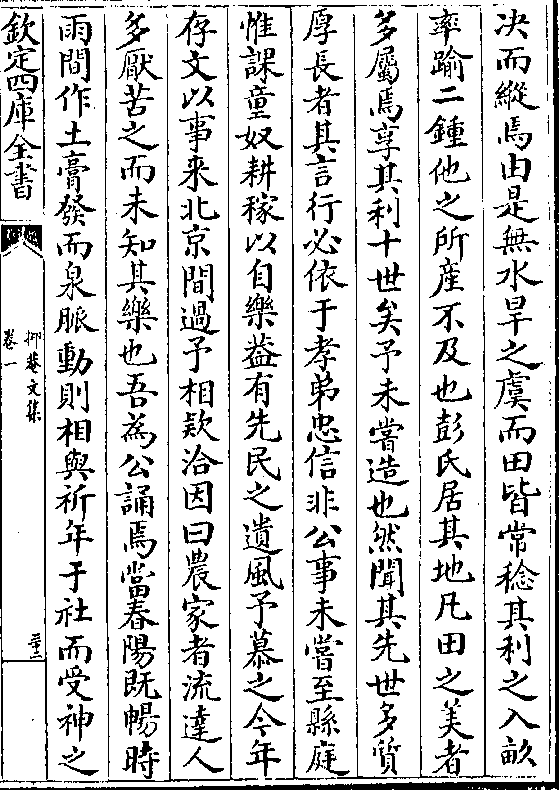 决而縱焉由是無水旱之虞而田皆常稔其利之入畝
率踰二鍾他之所産不及也彭氏居其地凡田之美者
多屬焉享其利十世矣予未嘗造也然聞其先世多質
厚長者其言行必依于孝弟忠信非公事未嘗至縣庭
惟課童奴耕稼以自樂葢有先民之遺風予慕之今年
存文以事来北京間過予相欵洽因曰農家者流達人
多厭苦之而未知其樂也吾為公誦焉當春陽既暢時
雨間作土膏發而泉脈動則相與祈年于社而受神之
欽定四庫全書
抑菴文集
卷一
三十二